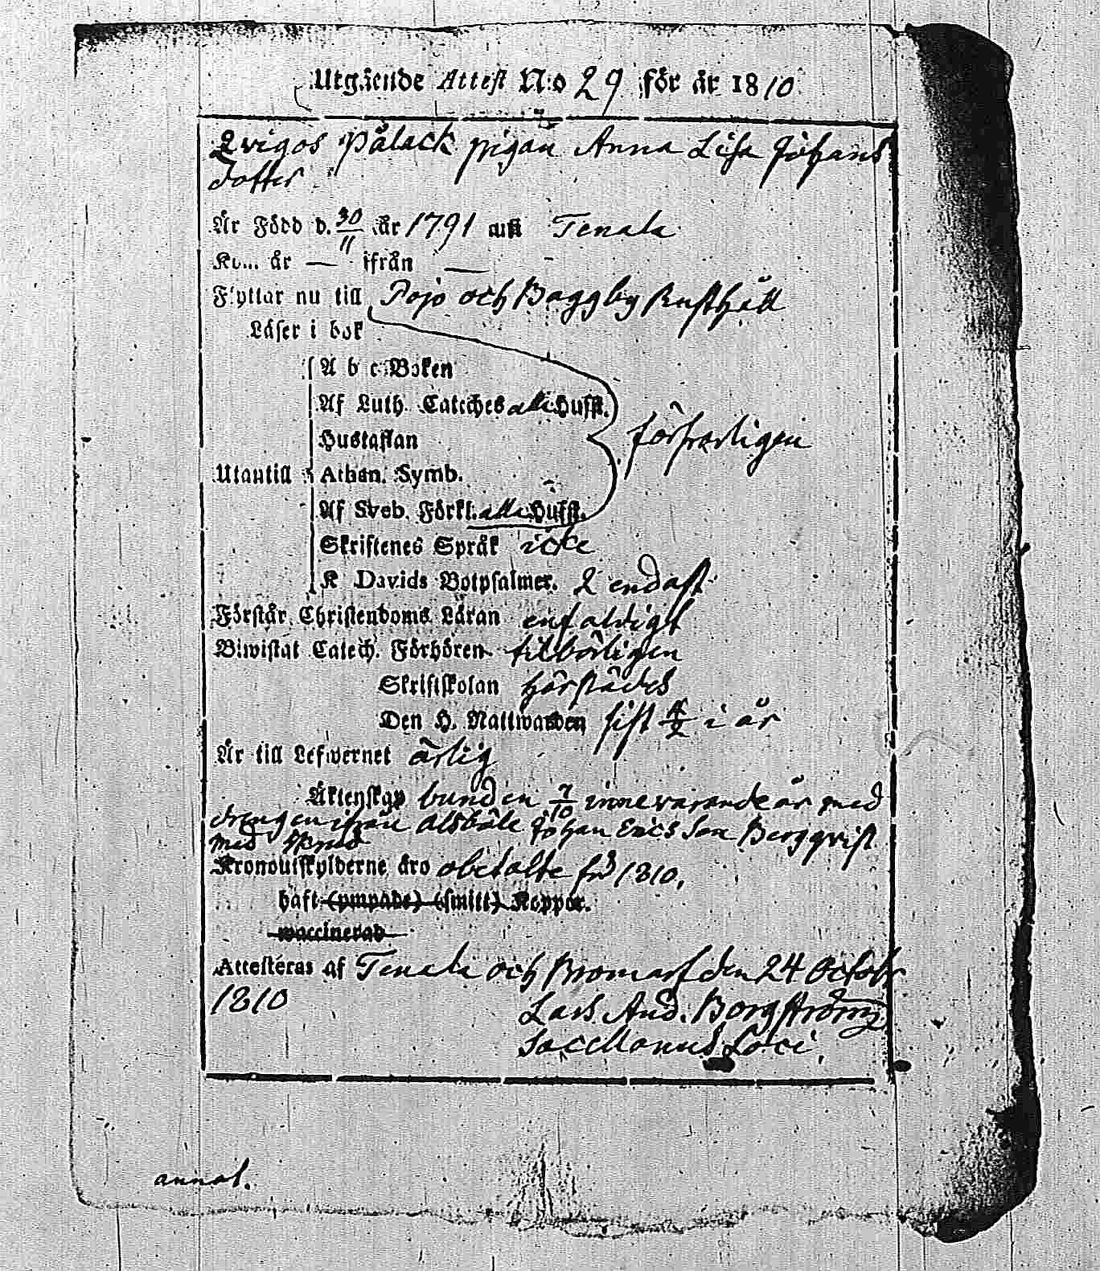 Utgående Attest N:o 29 för år 1810
Qvigos Pålack pigan Anna Lisa Johans
dotter
Är Född d. 30/11 år 1791 uti Tenala
Kom år — ifrån —
Flyttar nu till Pojo och Baggby Rusthåll
Läser i bok
A b c Boken
Af Luth. Cateches alla Hufst.
Hustaflan
Utantill Athan. Symb. förfärligen
Af Sveb. Förkl. alla Hufst.
Skriftenes Språk icke
K Davids Botpsalmer. 2 endast
Förstår Christendoms Läran enfaldigt
Biwistat Catech. Förhören tilbörligen
Skriftskolan härstädes
Den H. Nattwarden sist i år
Är till Lefwernet ärlig
Äktenskap bunden 7/10 innevarande år med
drengen ifrån Johan Ericsson Bergqvist
med
Kronoutskylderne äro obetalte för 1810.
haft (ympade) (smitt) Koppor.
waccinerad
Attesteras af Tenala och Bromarf den 24 Octobr
1810
Lars And. Borgström
Sacellanus Loci.
annot.